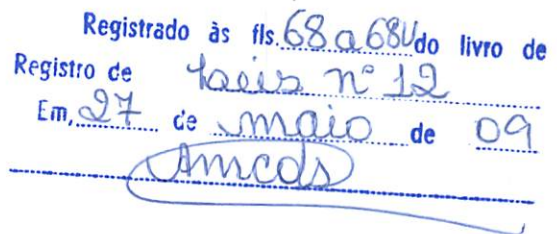 Registrado às fls. 68 a 68V do livro de
Registro de Leis nº 12
Em, 27 de maio de 09
Amcds